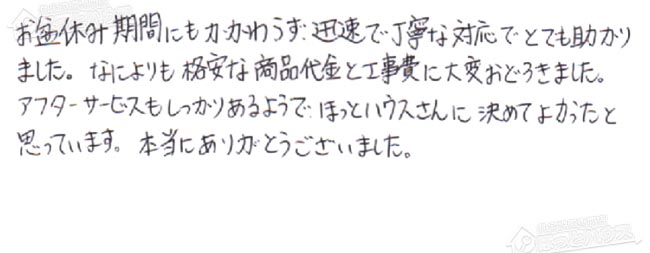 お盆休み期間にもかかわらず迅速で丁寧な対応でとても助かり
ました。なによりも格安な商品代金と工事費に大変おどろきました。
アフターサービスもしっかりあるようでほっとハウスさんに決めてよかったと
思っています。本当にありがとうございました。
ほっとハウス